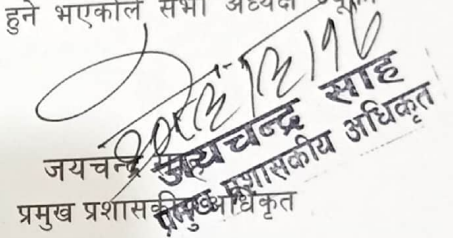 हुने भएकोले सभा अध्यक्ष
जयचन्द्र साह
प्रमुख प्रशासकीय अधिकृत
जयचन्द्र साह
प्रमुख प्रशासकीय अधिकृत